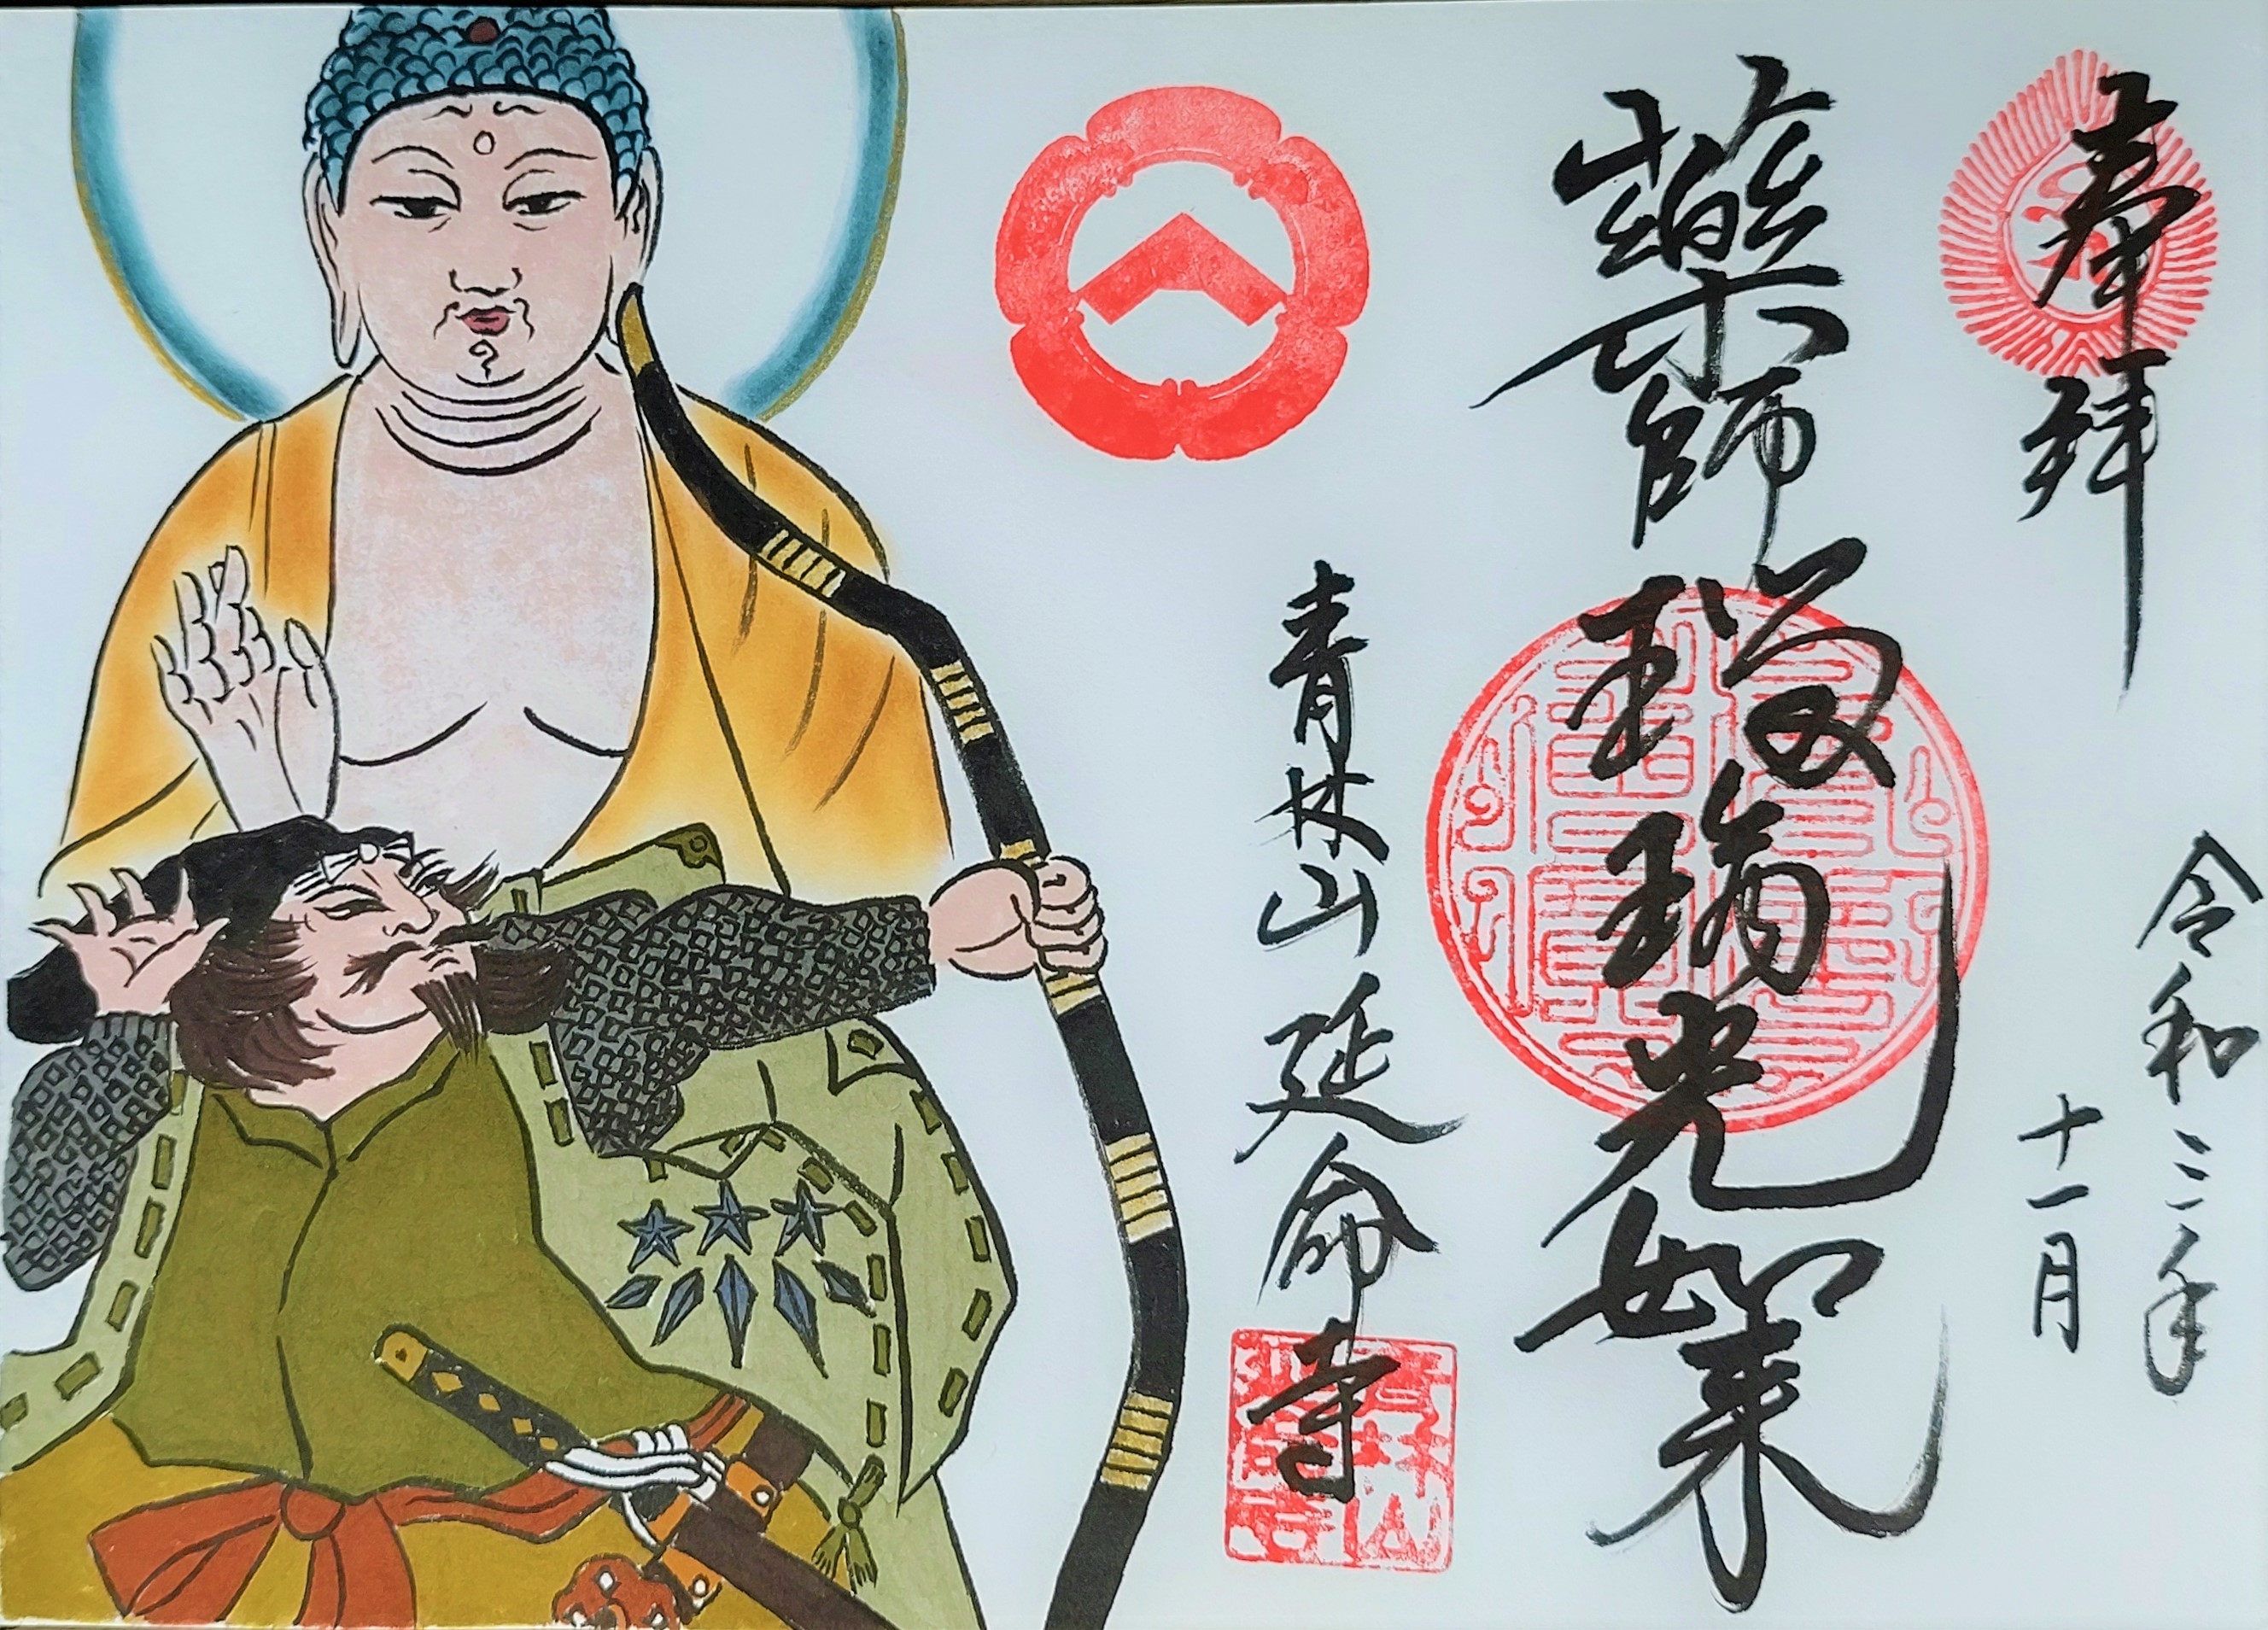 奉拝
令和三年
十一月
藥師瑠璃光如来
青林山延命寺